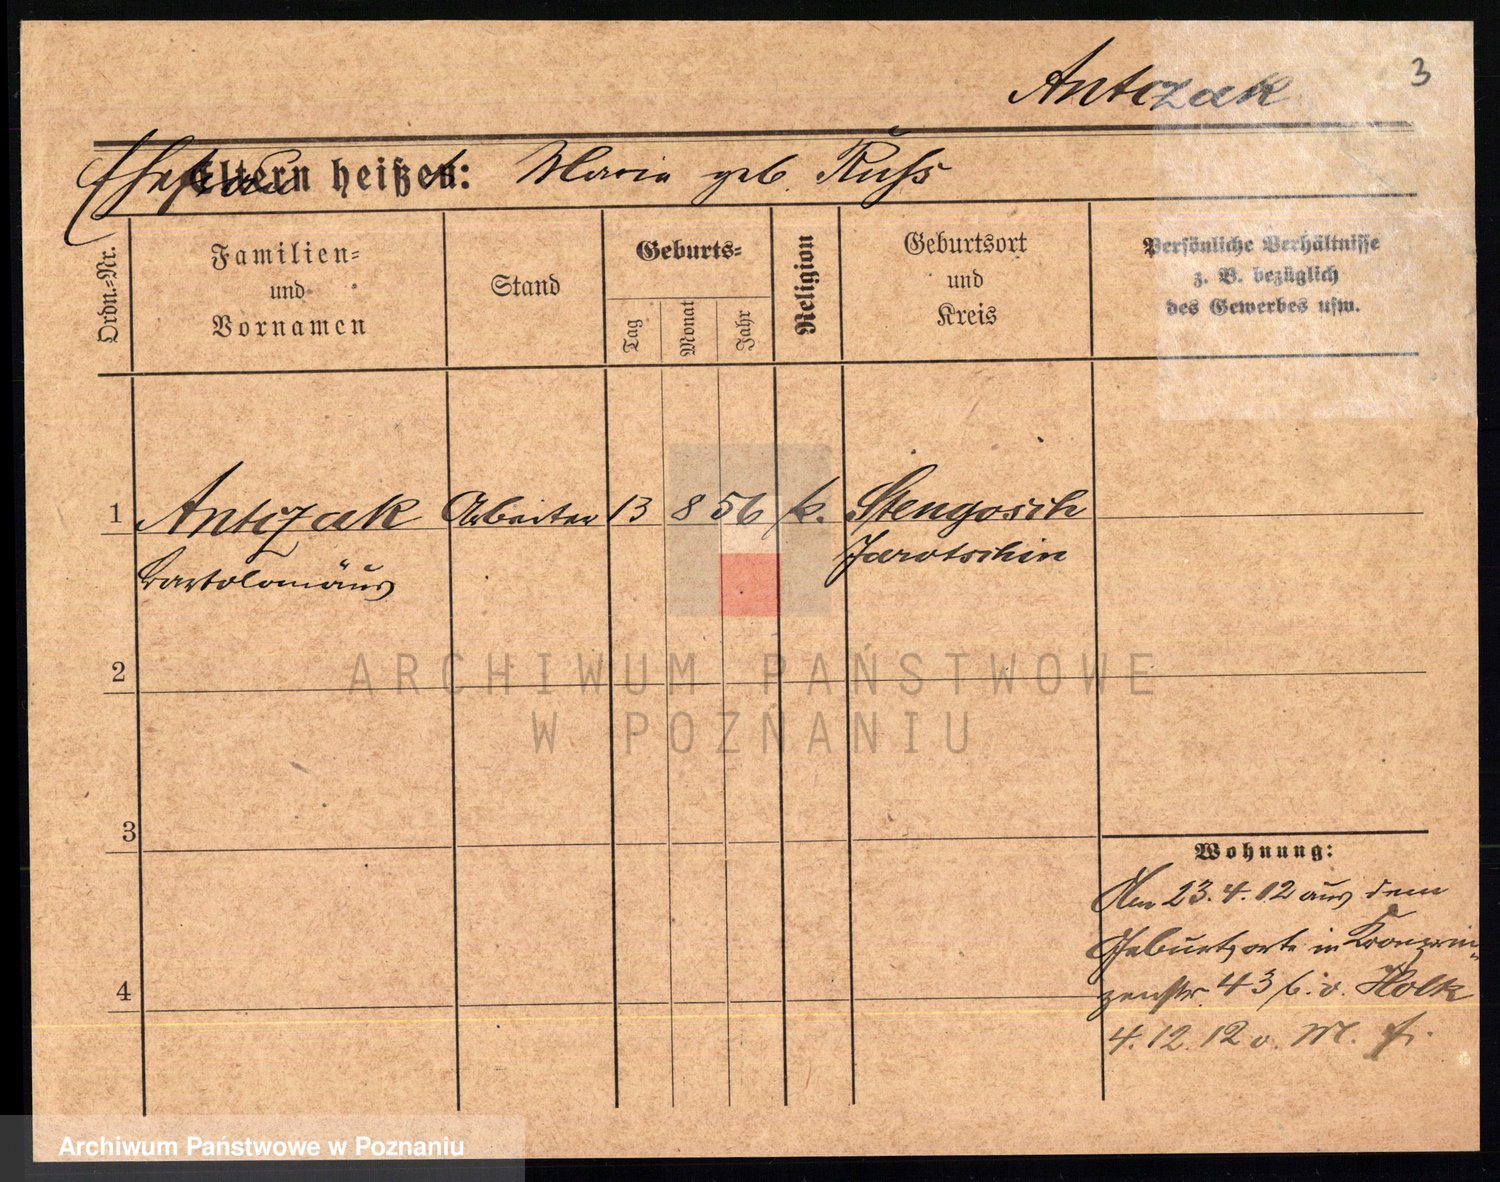 Antczak
3
Ehefrau Eltern heißen: Maria geb. Ruhs
Ordn.-Nr.
Familien=
und
Vornamen
Stand
Geburts=
Tag
Monat
Jahr
Religion
Geburtsort
und
Kreis
Persönliche Verhältnisse
z. B. bezüglich
des Gewerbes usw.
1 Antczak Arbeiter 13 8 56 k. Stengosch
Bartolomäus Jarotschin
2
3
4
Wohnung:
Am 23.4.12 aus dem
Geburtsorte in Kronprin-
zenstr. 43 b. v. Holk
4.12.12 v. M.
ARCHIWUM PAŃSTWOWE
W POZNANIU
Archiwum Państwowe w Poznaniu